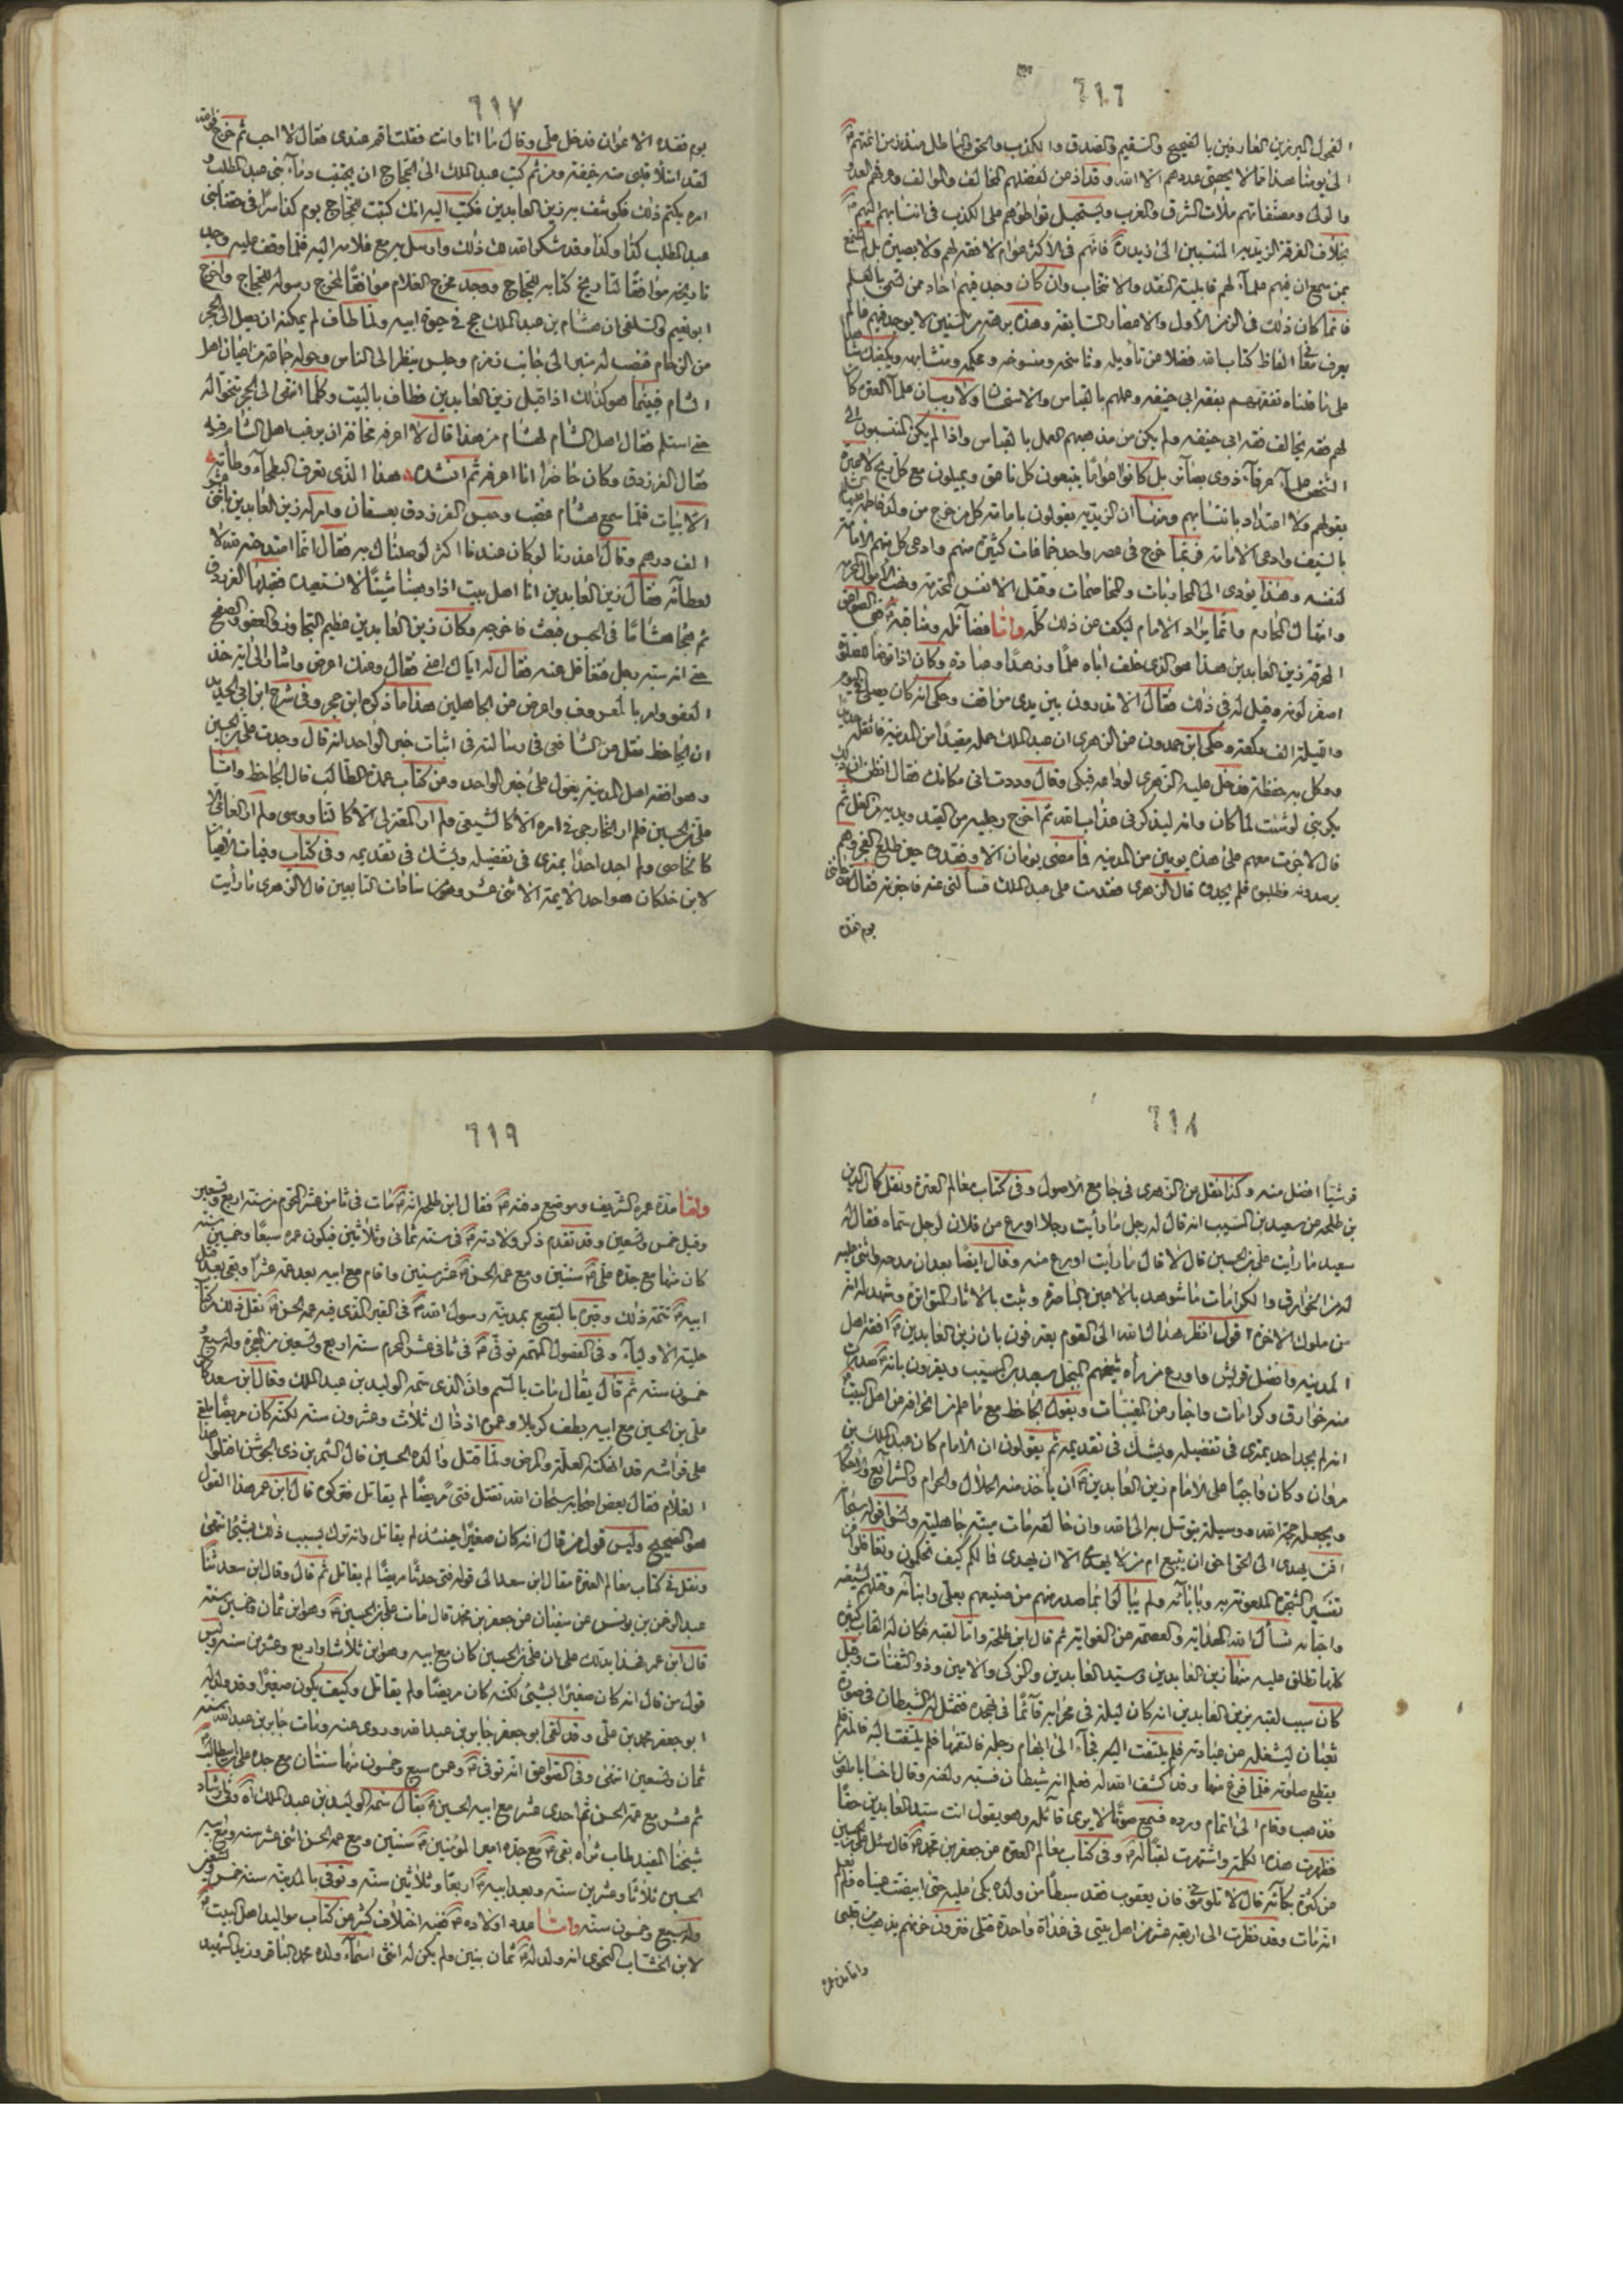 ٦١٦
الفحول المبرزين العارفين بالصحيح والسقيم والصدق والكذب والحق والباطل
الى يومنا هذا ما لا يحصى عددهم الا الله وقد اذعن لفضلهم المخالف والموالف
ومصنفاتهم ملأت الشرق والغرب ويستحيل تواطؤهم على الكذب في انتسابهم اليهم
بخلاف الفرقة الزيدية المنتسبين الى زيد فانهم في الاكثر عوام لا فقه لهم ولا بصيرة بل لم
ان فيهم علماء لهم قابلية النقد والانتخاب وان كان وجد فيهم احاد
فانما كان ذلك في الزمن الأول والاعصار السابقة وهذه برهة من السنين لا يوجد فيهم عالم
يعرف معاني الفاظ كتاب الله فضلا عن تأويله وناسخه ومنسوخه ومحكمه ومتشابهه
على ما قلناه تفقههم بفقه ابي حنيفه وعملهم بالقياس والاستحسان ولا
لهم فقه يخالف فقه ابي حنيفه ولم يكن من مذهبهم العمل بالقياس واذا لم يكن المنتسبون الى
علماء عرفاء ذوى بصائر بل كانوا عواما يتبعون كل ناعق ويميلون مع كل ريح لا عبرة
بقولهم ولا اعتداد بانتسابهم ومنها ان الزيدية يقولون بامامة كل من خرج من ولد فاطمة
بالسيف وادعى الامامة فربما خرج في عصر واحد جماعات كثيرة منهم وادعى كل منهم الامامة
لنفسه وهذا يؤدى الى المحاربات والمخاصمات وقتل الانفس المحترمة
وانتهاك المحارم وانما يراد الامام ليكف عن ذلك كله واما فضائله ومناقبه ففي الصواعق
المحرقة زين العابدين هذا هو الذى خلف اباه علما وزهدا وعبادة وكان اذا توضأ للصلوة
اصفر لونه وقيل له في ذلك فقال الا تدرون بين يدى من اقف وحكى انه كان يصلى في اليوم
والليلة الف ركعة وحكى ابن حمدون عن الزهرى ان عبد الملك حمله مقيدا من المدينة
ووكل به حفظة فدخل عليه الزهرى لوداعه فبكى وقال وددت انى مكانك فقال اتظن ان ذلك
يكربنى لو شئت لما كان وانه ليذكرنى عذاب الله ثم اخرج رجليه من القيد ويديه من الغل ثم
قال لا جزت معهم على هذا يومين من المدينة فما مضى يومان الا وفقدوه حين طلع الفجر وهم
يرصدونه فطلبوه فلم يجدوه قال الزهرى فقدمت على عبد الملك فسألنى عنه فاخبرته فقال
يوم فقده
٦١٧
يوم فقده الاعوان فدخل على وقال ما انا وانت فقلت اقم عندى فقال لا احب ثم خرج فوالله
لقد امتلأ قلبى منه خيفة ومن ثم كتب عبد الملك الى الحجاج ان يجتنب دماء بنى عبد المطلب
امره بكتم ذلك فكوشف به زين العابدين فكتب اليه انك كتبت للحجاج يوم كذا سرا في حقنا بنى
عبد المطلب كذا وكذا وقد شكر الله لك ذلك وارسل به مع غلامه اليه فلما وقف عليه وجد
تاريخه موافقا لتاريخ كتابه للحجاج ووجد مخرج الغلام موافقا لمخرج رسوله للحجاج واخرج
ابو نعيم والسلفى ان هشام بن عبد الملك حج في حيوة ابيه ولما طاف لم يمكنه ان يصل الى الحجر
من الزحام فنصب له منبر الى جانب زمزم وجلس ينظر الى الناس وحوله جماعة من اعيان اهل
الشام فبينما هو كذلك اذ اقبل زين العابدين فطاف بالبيت وكلما انتهى الى الحجر تنحوا له
حتى استلم فقال اهل الشام لهشام من هذا قال لا اعرفه مخافة ان يرغب اهل الشام فيه
فقال الفرزدق وكان حاضرا انا اعرفه ثم انشده هذا الذى تعرف البطحاء وطأته
الابيات فلما سمع هشام غضب وحبس الفرزدق بعسفان وامر له زين العابدين باثنى عشر
الف درهم وقال اعذرنا لو كان عندنا اكثر لوصلناك به فقال انما امتدحته لله لا
لعطائه فقال زين العابدين انا اهل بيت اذا وهبنا شيئا لا نستعيده فقبلها الفرزدق
ثم هجا هشاما في الحبس فبعث فاخرجه وكان زين العابدين عظيم التجاوز والعفو والصفح
حتى انه سبه رجل فتغافل عنه فقال له اياك اعنى فقال وعنك اعرض واشار الى اية خذ
العفو وامر بالمعروف واعرض عن الجاهلين هذا ما ذكره ابن حجر وفي شرح ابن ابى الحديد
ان الجاحظ نقل عن الشافعى في رسالته في اثبات خبر الواحد انه قال وجدت على بن الحسين
وهو افقه اهل المدينة يعول على خبر الواحد ومن كتاب عمدة الطالب قال الجاحظ واما
على بن الحسين فلم ار الخارجى في امره الا كالشيعى ولم ار المعتزلى الا كالعامى ولم ار العامى الا
كالخاصى ولم اجد احدا يمترى في تفضيله ويشك في تقديمه وفي كتاب وفيات الاعيان
لابن خلكان هو احد الأيمة الاثنى عشر ومن سادات التابعين قال الزهرى ما رأيت
٦١٨
قرشيا افضل منه وكذا نقل عن الزهرى في جامع الاصول وفي كتاب معالم العترة ونقل كمال الدين
بن طلحه عن سعيد بن المسيب انه قال له رجل ما رأيت رجلا اورع من فلان لرجل سماه فقال له
سعيد ما رأيت على بن الحسين قال لا قال ما رأيت اورع منه وقال ايضا بعد ان مدحه واثنى عليه
له من الخوارق والكرامات ما شوهد بالاعين الناظرة وثبت بالاثار المتواترة وشهد له انه
من ملوك الاخرة اقول انظر هداك الله الى القوم يعترفون بان زين العابدين افقه اهل
المدينه وافضل قريش واورع من رأه شيخهم المبجل سعيد بن المسيب ويقرون بانه صدرت
منه خوارق وكرامات واخبار عن المغيبات ويقول الجاحظ مع ما علم من انحرافه عن اهل البيت
انه لم يجد احد يمترى في تفضيله ويشك في تقديمه ثم يقولون ان الامام كان عبد الملك بن
مروان وكان واجبا على الامام زين العابدين ان يأخذ منه الحلال والحرام والشرائع والاحكام
ويجعله حجة الله ووسيلة يتوسل به الى الله وان خالفه مات ميتة جاهلية ونسوا قوله سبحانه
افمن يهدى الى الحق احق ان يتبع ام من لا يهدى الا ان يهدى فما لكم كيف تحكمون وتغافلوا عن
تفسير الشجرة الملعونة به وبابائه ولم يبالوا بما صدر منهم من صنيعهم بعلى وابنائه وقتلهم شيعته
واحبائه نسأل الله الهداية والعصمة عن الغواية ثم قال ابن طلحة واما لقبه فكان له القاب كثيرة
كلها تطلق عليه منها زين العابدين وسيد العابدين والزكى والامين وذو الثفنات وقيل
كان سبب لقبه بزين العابدين انه كان ليلة في محرابه قائما في تهجده فتمثل له الشيطان في صورة
ثعبان ليشغله عن عبادته فلم يلتفت اليه فجاء الى ابهام رجله فالتقمها فلم يلتفت اليه فالمه فلم
يقطع صلوته فلما فرغ منها وقد كشف الله له فعلم انه شيطان فسبه ولعنه وقال اخسأ يا ملعون
فذهب وقام الى اتمام ورده فسمع صوتا لا يرى قائله وهو يقول انت سيد العابدين حقا
فظهرت هذه الكلمة واشتهرت لقبا له وفي كتاب معالم العترة عن جعفر بن محمد قال سئل على بن الحسين
عن كثرة بكائه قال لا تلومونى فان يعقوب فقد سبطا من ولده بكى عليه حتى ابيضت عيناه ولم يعلم
انه مات وقد نظرت الى اربعة عشر من اهل بيتى في غداة واحدة قتلى فترون حزنهم يذهب من قلبى
واما مدة عمره
٦١٩
واما مدة عمره الشريف وموضع دفنه فقال ابن طلحه انه مات في ثامن عشر المحرم من سنة اربع وتسعين
وقيل خمس وتسعين وقد تقدم ذكر ولادته في سنة ثمانى وثلاثين فيكون عمره سبعا وخمسين سنة
كان منها مع جده على سنتين ومع عمه الحسن عشر سنين واقام مع ابيه بعد عمه عشرا وبقى بعد قتل
ابيه تتمة ذلك وقبره بالبقيع بمدينة رسول الله في القبر الذى فيه عمه الحسن نقل ذلك
حلية الاولياء وفي الفصول المهمة توفى في ثانى عشر المحرم سنة اربع وتسعين من الهجرة وله سبع
خمسون سنة ثم قال يقال مات بالسم وان الذى سمه الوليد بن عبد الملك وقال ابن سعد كان
على بن الحسين مع ابيه بطف كربلا وعمره اذ ذاك ثلاث وعشرون سنة لكنه كان مريضا ملقى
على فراشه قد انهكته العلة والمرض ولما قتل والده الحسين قال الشمر بن ذى الجوشن اقتلوا هذا
الغلام فقال بعض اصحابه سبحان الله تقتل فتى مريضا لم يقاتل فتركوه قال ابن عمر هذا القول
هو الصحيح وليس قول من قال انه كان صغيرا حينئذ لم يقاتل وانه ترك بسبب ذلك بشىء انتهى
ونقل في كتاب معالم العترة مقال ابن سعد الى قوله فتى حدثا مريضا لم يقاتل ثم قال وقال ابن سعد ثنا
عبد الرحمن بن يونس عن سفيان عن جعفر بن محمد قال مات على بن الحسين وهو ابن ثمان وخمسين سنة
قال ابن عمر فهذا يدلك على ان على بن الحسين كان مع ابيه وهو ابن ثلاث او اربع وعشرين سنة وليس
قول من قال انه كان صغيرا بشىء لكنه كان مريضا ولم يقاتل وكيف يكون صغيرا وقد ولد له
ابو جعفر محمد بن على وقد لقى ابو جعفر جابر بن عبد الله وروى عنه ومات جابر بن عبد الله سنة
ثمان وتسعين انتهى وفي الصواعق انه توفى وعمره سبع وخمسون منها سنتان مع جده على بن ابى طالب
ثم عشر مع عمه الحسن ثم احدى عشر مع ابيه الحسين يقال سمه الوليد بن عبد الملك اه وفي ارشاد
شيخنا المفيد طاب ثراه بقى مع جده امير المؤمنين سنتين ومع عمه الحسن اثنى عشر سنة ومع ابيه
الحسين ثلاثا وعشرين سنة وبعد ابيه اربعا وثلاثين سنة وتوفى بالمدينة سنة خمس وتسعين
وله سبع وخمسون سنه واما عدد اولاده ففيه اختلاف كثير عن كتاب مواليد اهل البيت
لابن الخشاب النحوى انه ولد له ثمان بنين ولم يكن له انثى اسماء ولده محمد الباقر وزيد الشهيد